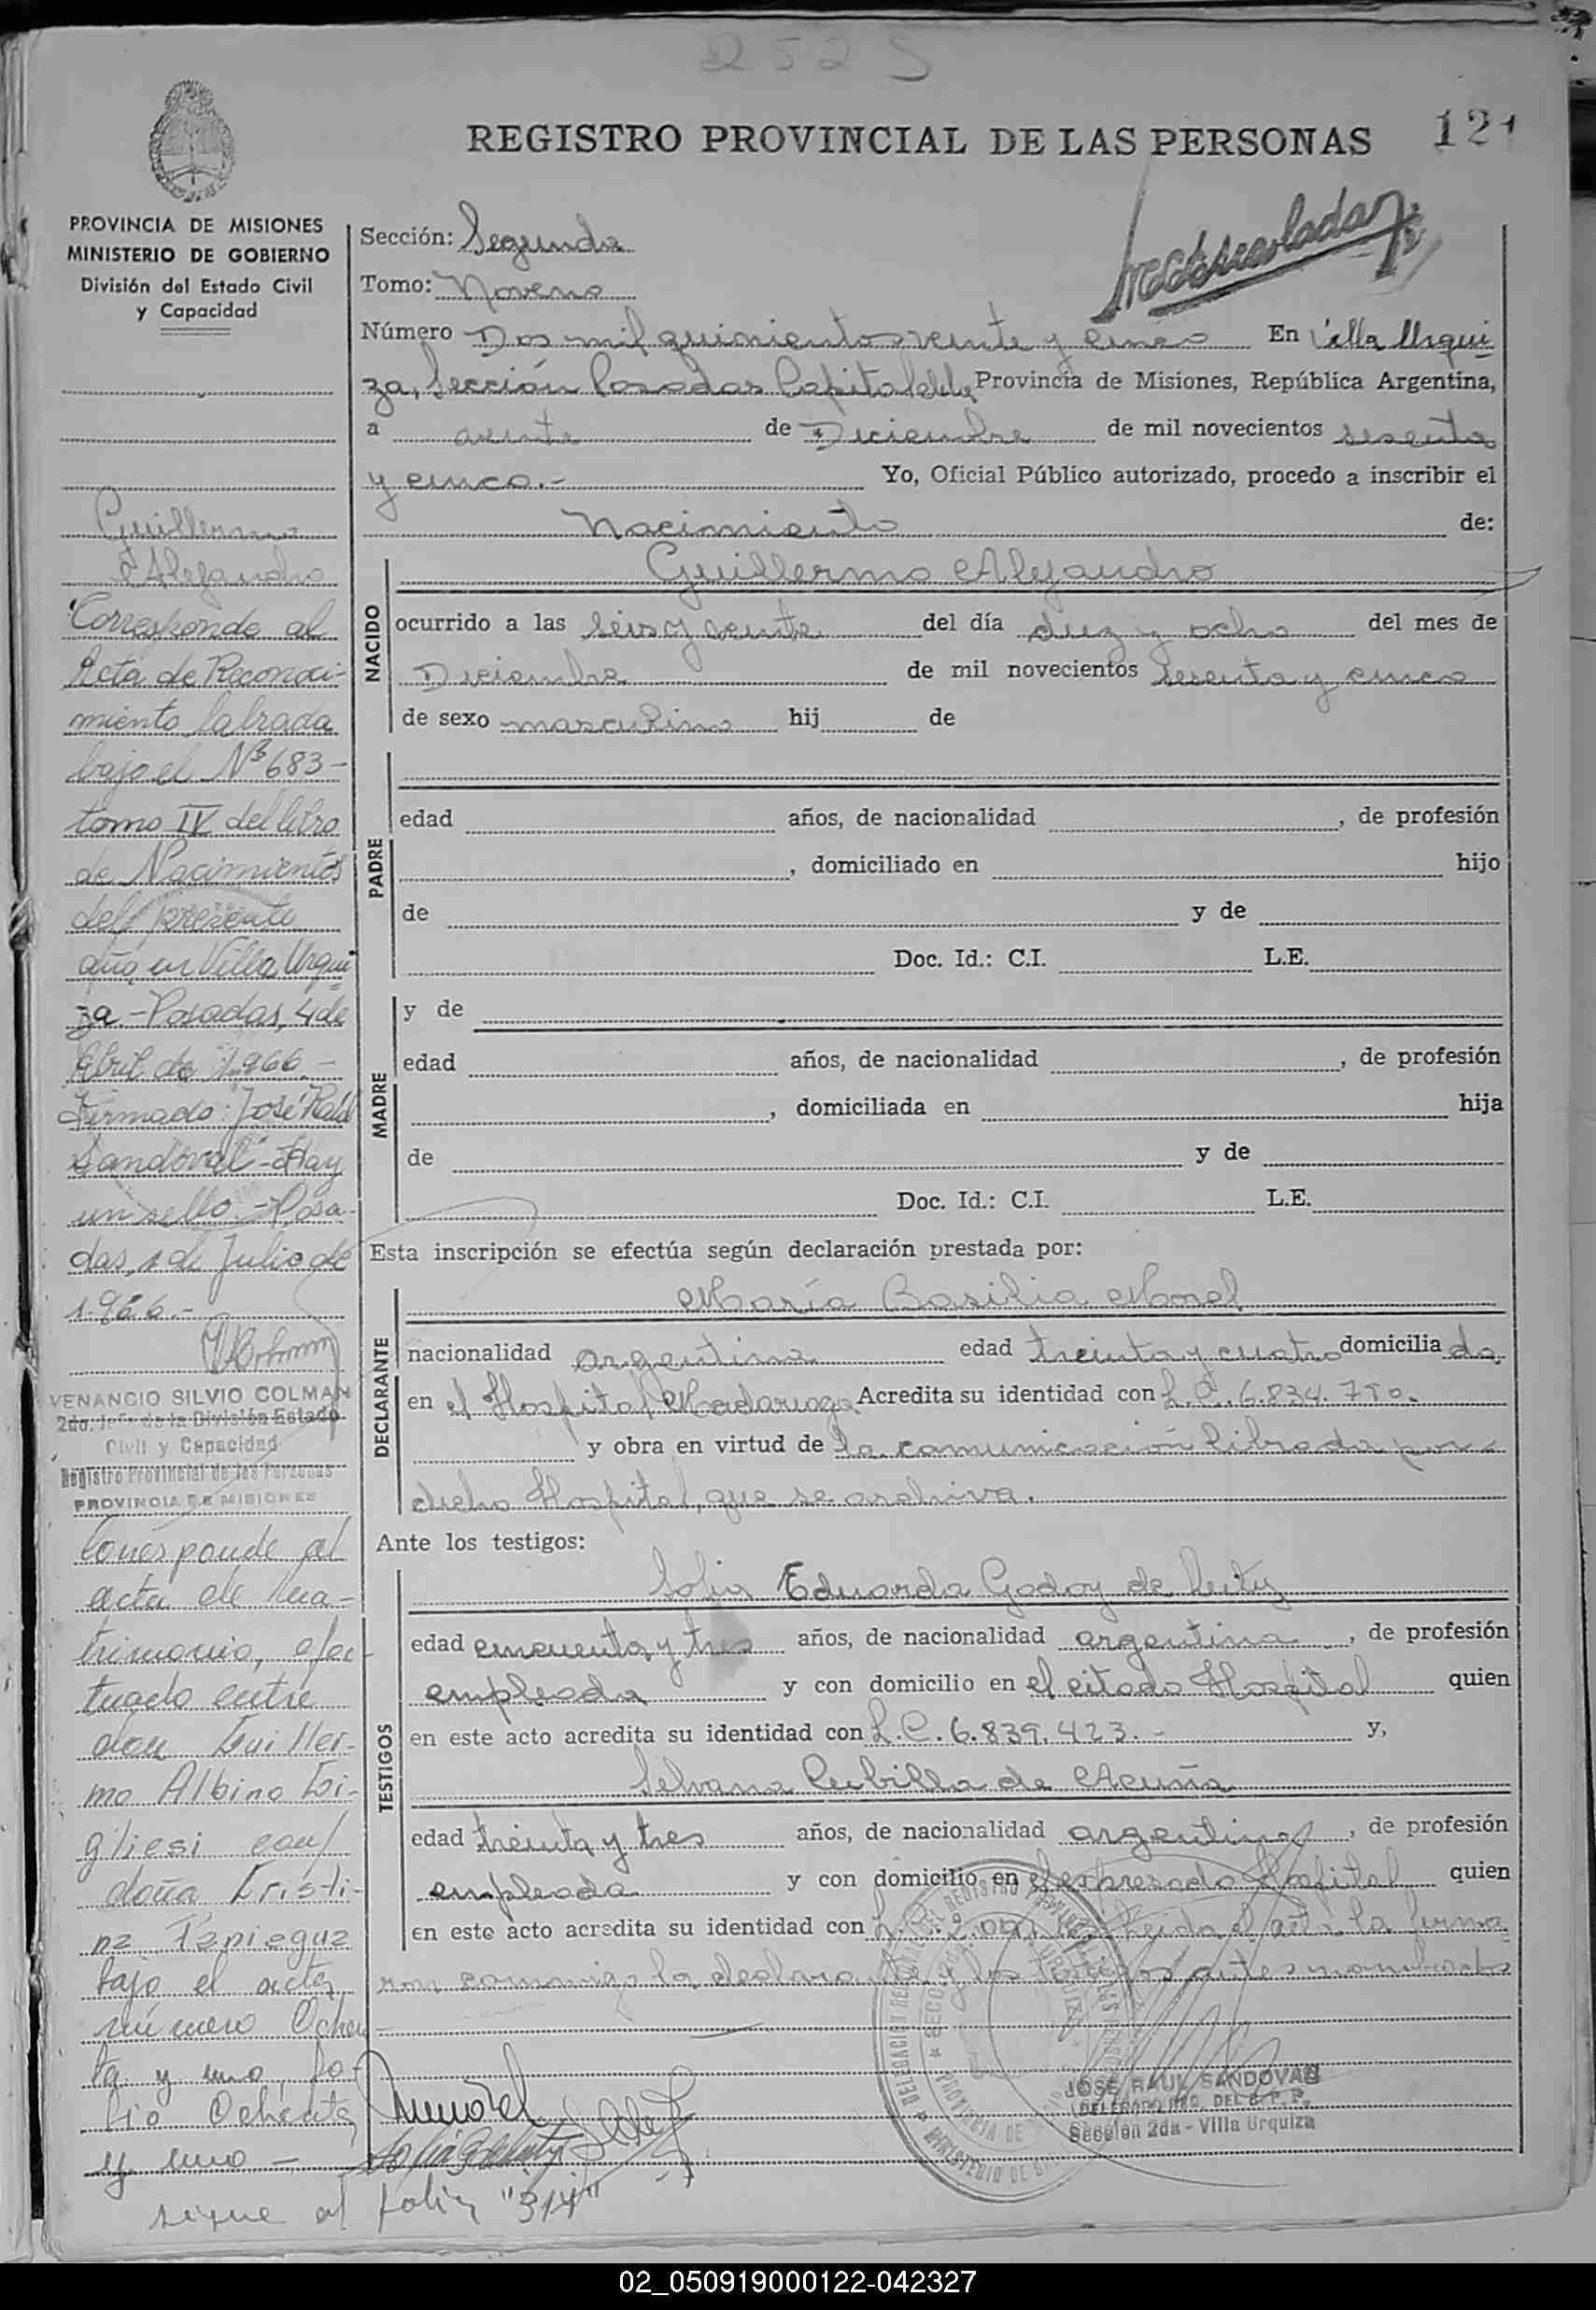 2525
REGISTRO PROVINCIAL DE LAS PERSONAS
121
PROVINCIA DE MISIONES
MINISTERIO DE GOBIERNO
División del Estado Civil
y Capacidad
Guillermo
Alejandro
"Corresponde al
Acta de Reconoci-
miento labrada
bajo el Nº 683-
tomo IV del libro
de Nacimientos
del presente
año, en Villa Urqui
za.- Posadas, 4 de
Abril de 1.966.-
Firmado: José Raúl
Sandoval"- Hay
un sello.- Posa-
das, 1 de Julio de
1.966.-
VENANCIO SILVIO COLMAN
2do. Jefe de la División Estado
Civil y Capacidad
Registro Provincial de las Personas
PROVINCIA DE MISIONES
Corresponde al
acta de ma-
trimonio, efec-
tuado entre
don Guiller-
mo Albino Gi-
gliesi con
doña Cristi-
na
bajo el acta
número Ochen
ta y uno, fo-
lio Ochenta
y uno -
sigue al folio "314"
Sección: Segunda
Tomo: Noveno
Número Dos mil quinientos veinte y cinco En Villa Urqui
za, Sección Posadas Capital de la Provincia de Misiones, República Argentina,
a veinte de Diciembre de mil novecientos sesenta
y cinco.- Yo, Oficial Público autorizado, procedo a inscribir el
Nacimiento de:
NACIDO
Guillermo Alejandro
ocurrido a las seis y veinte del día diez y ocho del mes de
Diciembre de mil novecientos sesenta y cinco
de sexo masculino hij de
PADRE
edad años, de nacionalidad , de profesión
, domiciliado en hijo
de y de
Doc. Id.: C.I. L.E.
MADRE
y de
edad años, de nacionalidad , de profesión
, domiciliada en hija
de y de
Doc. Id.: C.I. L.E.
Esta inscripción se efectúa según declaración prestada por:
DECLARANTE
María Basilia Morel
nacionalidad argentina edad treinta y cuatro domicilia da
en el Hospital Madariaga Acredita su identidad con L.C. 6.834.790.
y obra en virtud de la comunicación librada por
dicho Hospital, que se archiva.
Ante los testigos:
TESTIGOS
Sofia Eduarda Godoy de
edad cincuenta y tres años, de nacionalidad argentina , de profesión
empleada y con domicilio en el citado Hospital quien
en este acto acredita su identidad con L.C. 6.839.423.- y,
Selvana Cubilla de Acuña
edad treinta y tres años, de nacionalidad argentina , de profesión
empleada y con domicilio en el expresado Hospital quien
en este acto acredita su identidad con L.C. Leida el acta la firma
ron conmigo la declarante y los testigos antes nombrados
JOSE RAUL SANDOVAL
DELEGADO REG. DEL R. P. P.
Sección 2da - Villa Urquiza
02_050919000122-042327